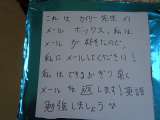 これは カイリー先生の
メール ボックス。私は
メールが 好きなので、
私にメールしてください！
私は できるかぎり 早く
メールを 返します！英語
勉強しましょう